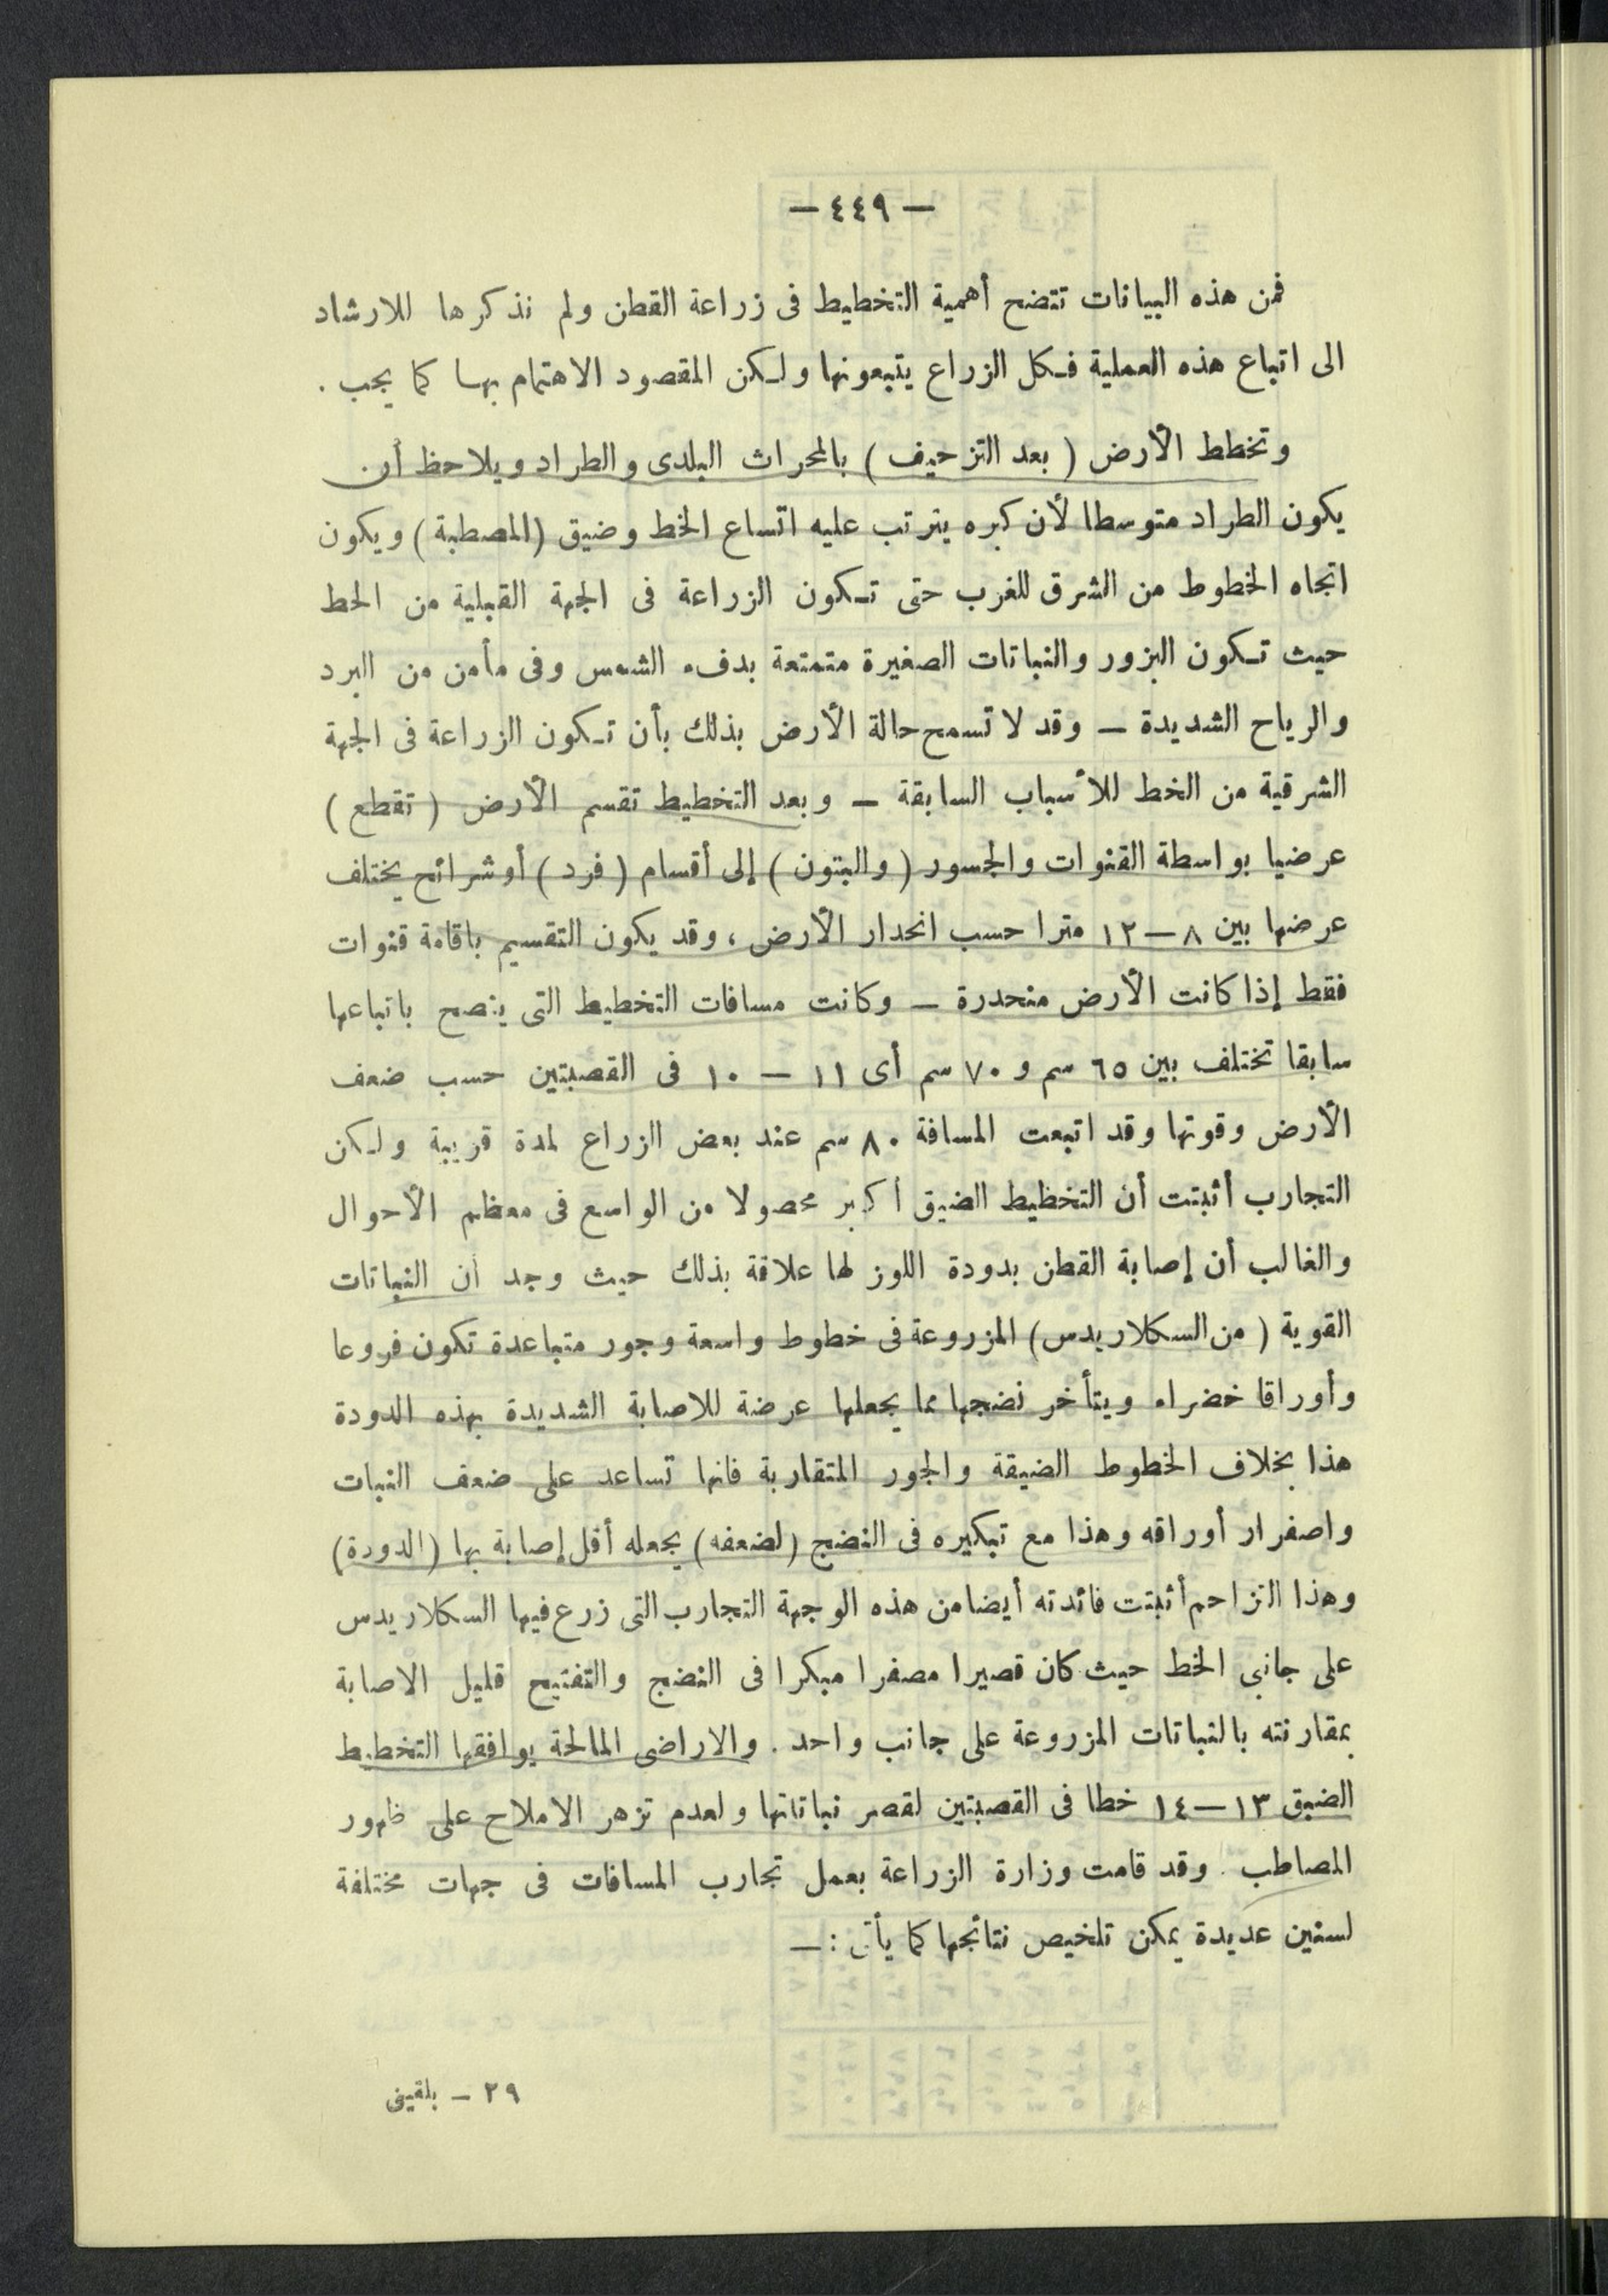 — ٤٤٩ —
فمن هذه البيانات تتضح أهمية التخطيط فى زراعة القطن ولم نذكرها للارشاد
الى اتباع هذه العملية فكل الزراع يتبعونها ولكن المقصود الاهتمام بها كما يجب .
وتخطط الأرض ( بعد التزحيف ) بالمحراث البلدى والطراد ويلاحظ أن
يكون الطراد متوسطا لأن كبره يترتب عليه اتساع الخط وضيق (المصطبة) ويكون
اتجاه الخطوط من الشرق للغرب حتى تكون الزراعة فى الجهة القبلية من الخط
حيث تكون البزور والنباتات الصغيرة متمتعة بدفء الشمس وفى مأمن من البرد
والرياح الشديدة — وقد لا تسمح حالة الأرض بذلك بأن تكون الزراعة فى الجهة
الشرقية من الخط للأسباب السابقة — وبعد التخطيط تقسم الأرض ( تقطع )
عرضيا بواسطة القنوات والجسور ( والبتون ) إلى أقسام ( فرد ) أو شرائح يختلف
عرضها بين ٨ — ١٢ مترا حسب انحدار الأرض ، وقد يكون التقسيم باقامة قنوات
فقط إذا كانت الأرض منحدرة — وكانت مسافات التخطيط التى ينصح باتباعها
سابقا تختلف بين ٦٥ سم و ٧٠ سم أى ١١ — ١٠ فى القصبتين حسب ضعف
الأرض وقوتها وقد اتبعت المسافة ٨٠ سم عند بعض الزراع لمدة قريبة ولكن
التجارب أثبتت أن التخطيط الضيق أكبر محصولا من الواسع فى معظم الأحوال
والغالب أن إصابة القطن بدودة اللوز لها علاقة بذلك حيث وجد أن النباتات
القوية ( من السكلاريدس) المزروعة فى خطوط واسعة وجور متباعدة تكون فروعا
وأوراقا خضراء ويتأخر نضجها مما يجعلها عرضة للاصابة الشديدة بهذه الدودة
هذا بخلاف الخطوط الضيقة والجور المتقاربة فانها تساعد على ضعف النبات
واصفرار أوراقه وهذا مع تبكيره فى النضج (لضعفه) يجعله أقل إصابة بها (الدودة)
وهذا التزاحم أثبتت فائدته أيضا من هذه الوجهة التجارب التى زرع فيها السكلاريدس
على جانبى الخط حيث كان قصيرا مصفرا مبكرا فى النضج والتفتيح قليل الاصابة
بمقارنته بالنباتات المزروعة على جانب واحد . والاراضى المالحة يوافقها التخطيط
الضيق ١٣ — ١٤ خطا فى القصبتين لقصر نباتاتها ولعدم تزهر الاملاح على ظهور
المصاطب . وقد قامت وزارة الزراعة بعمل تجارب المسافات فى جهات مختلفة
لسنين عديدة يمكن تلخيص نتائجها كما يأتى : —
٢٩ — بلقينى